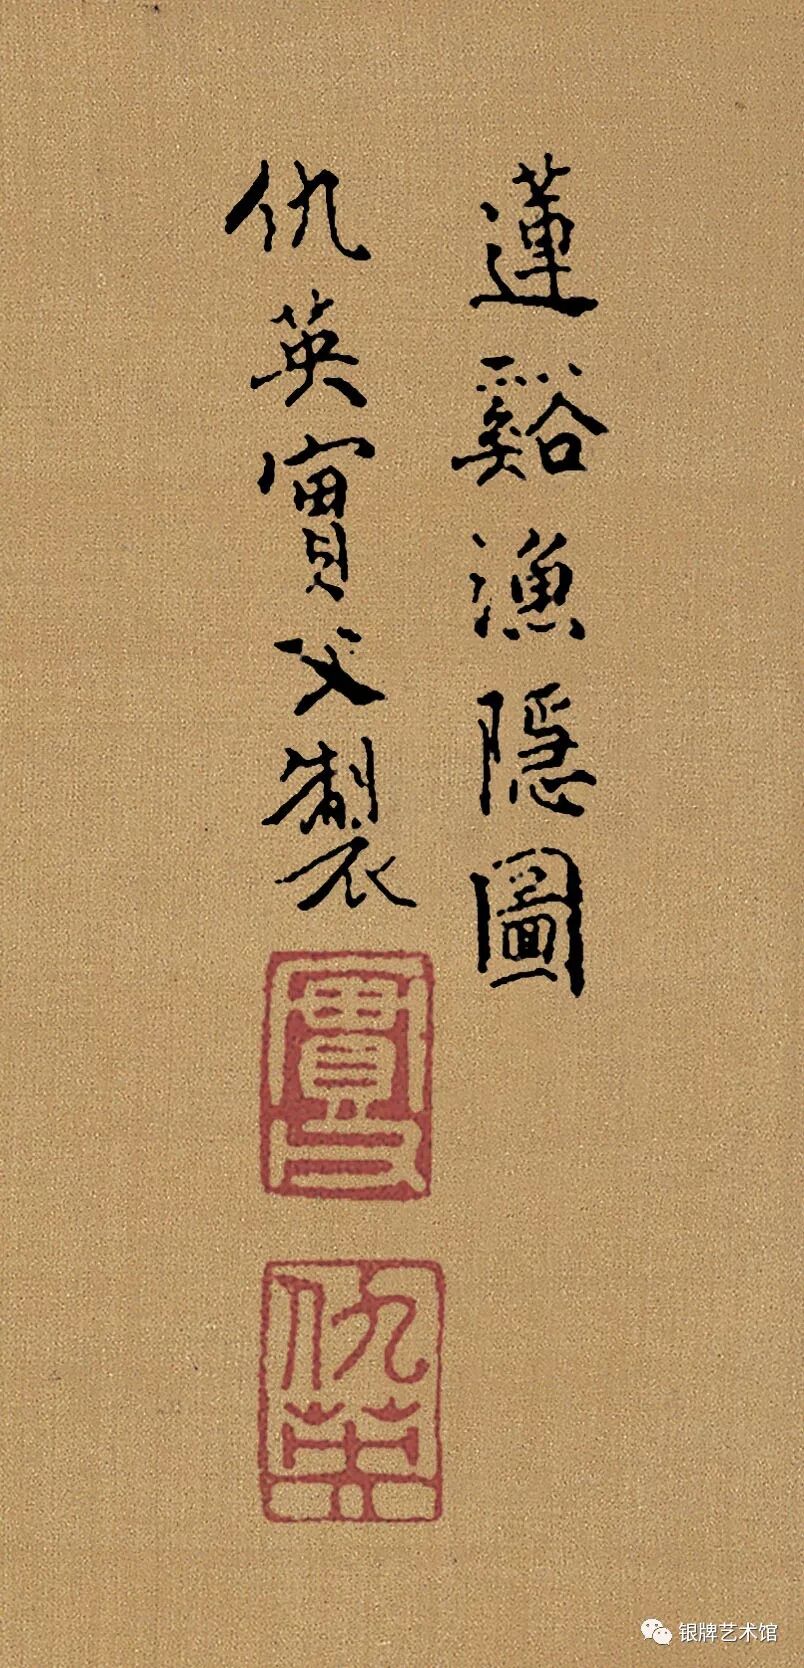 蓮谿漁隱圖
仇英實父製
實父
仇英
银牌艺术馆